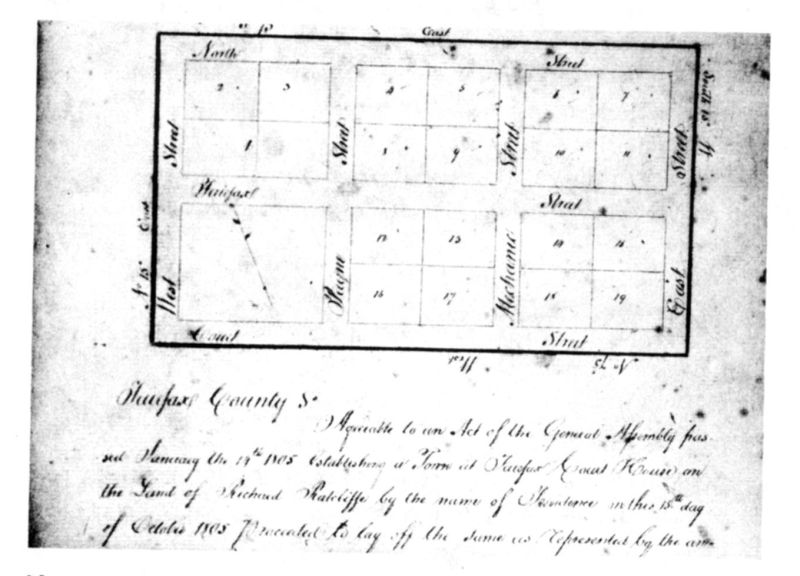 East
North Street
2 3 4 5 6 7
1 8 9 10 11
Street Street Street Street
Fairfax Street
12 13 14 15
16 17 18 19
West Payne Mechanic East
Court Street
N 15° East
South 15° W
West
N 75
Fairfax County Sc
Agreeable to an Act of the General Assembly pas-
sed January the 14th 1805 Establishing a Town at Fairfax Court House on
the Land of Richard Ratcliffe by the name of Providence on this 15th day
of October 1805 Proceeded to lay off the same as represented by the an-